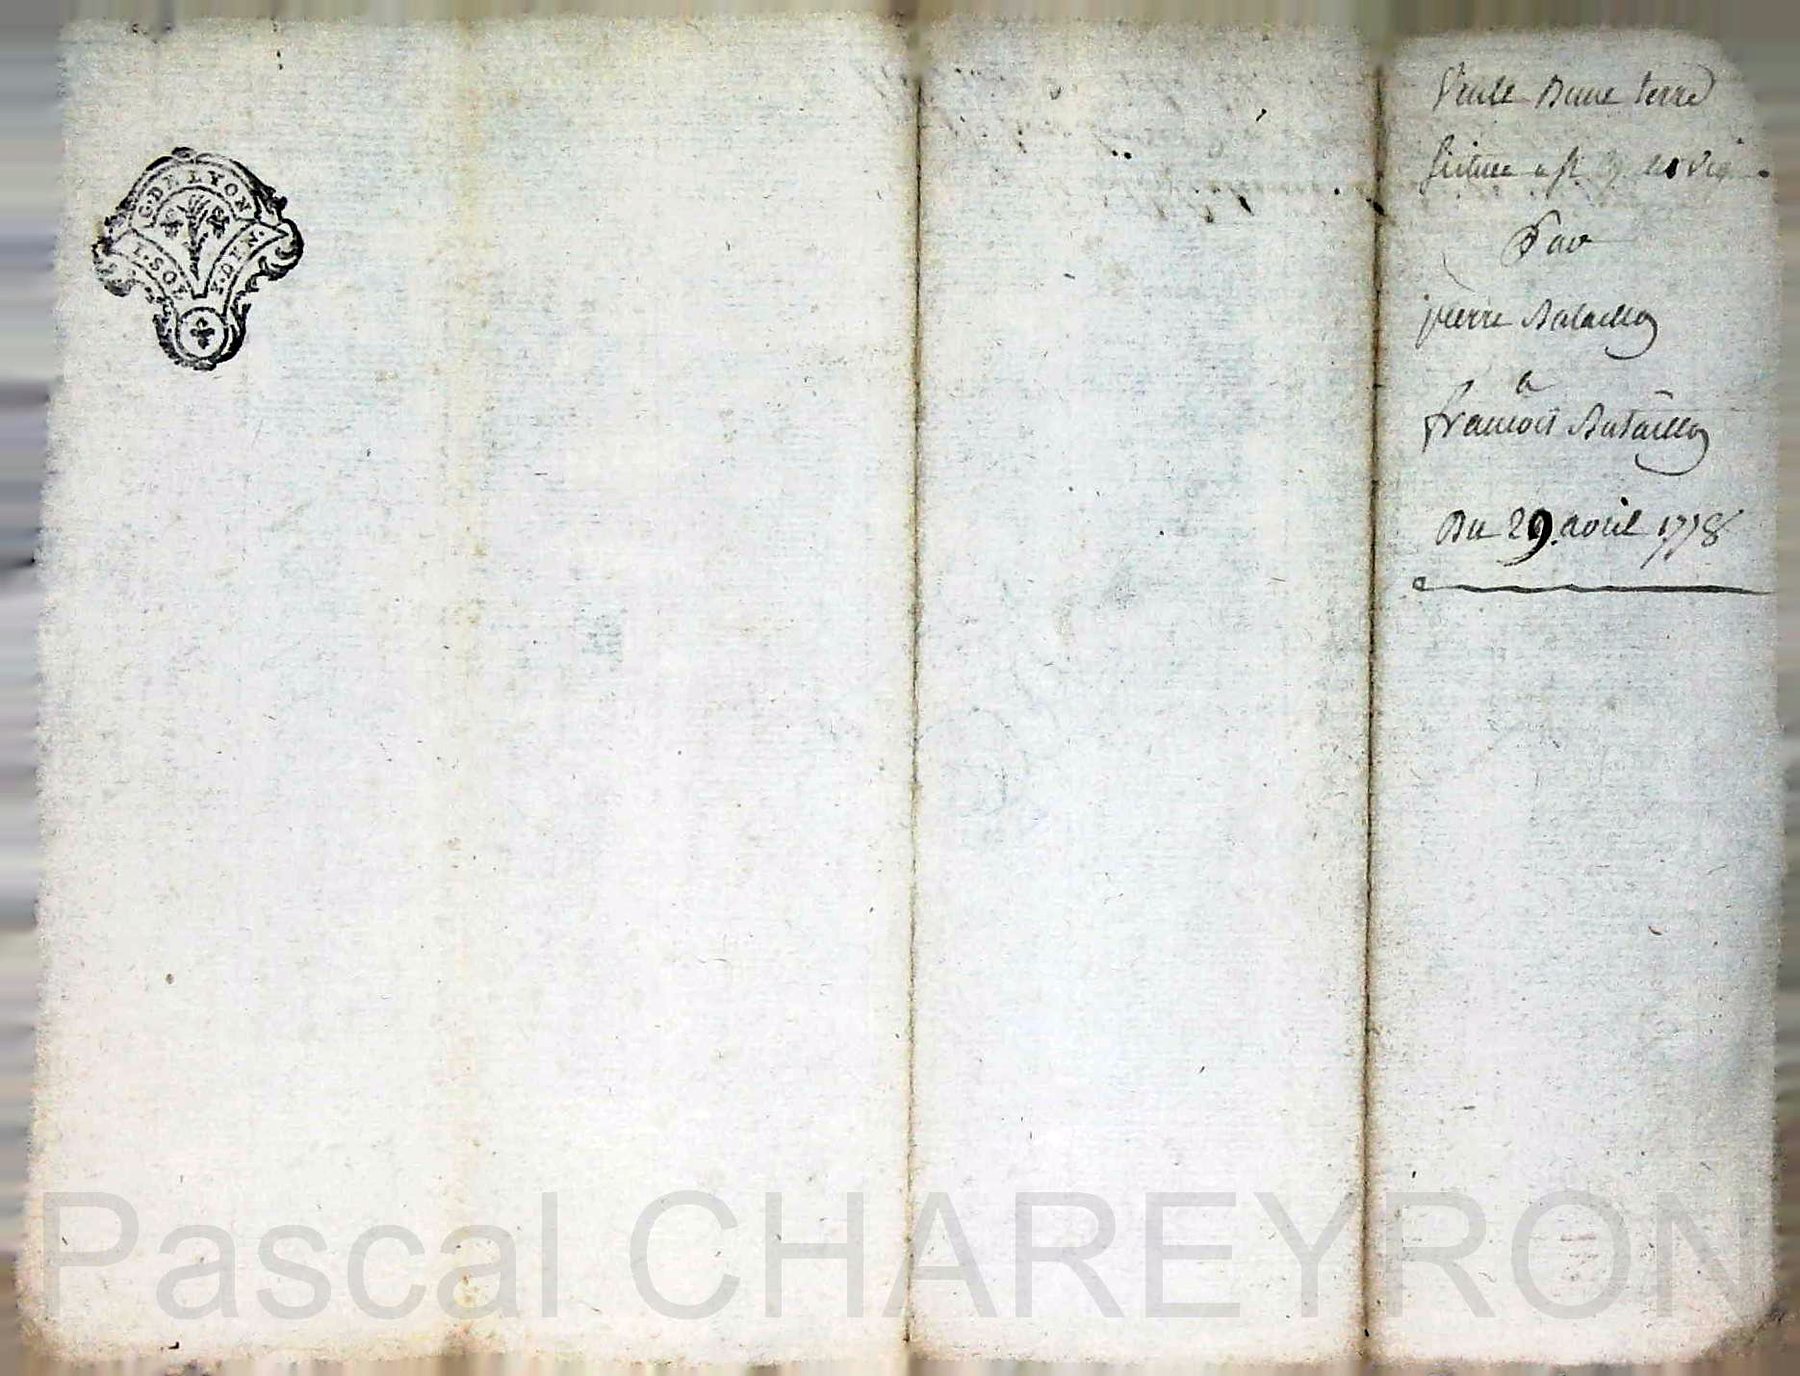 G. DE LYON
1. SOL 4. DEN.
Vente Dune terre
scituee a st
Par
pierre Bataillon
a
francois Bataillon
Du 29. avril 1778
Pascal CHAREYRON